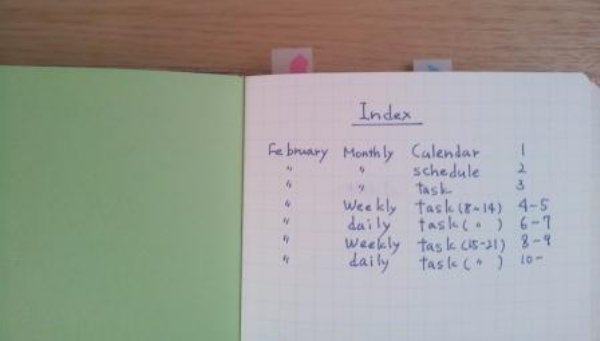 Index
February Monthly Calendar 1
" " schedule 2
" " task 3
" Weekly task (8~14) 4-5
" daily task ( " ) 6-7
" Weekly task (15-21) 8-9
" daily task ( " ) 10-